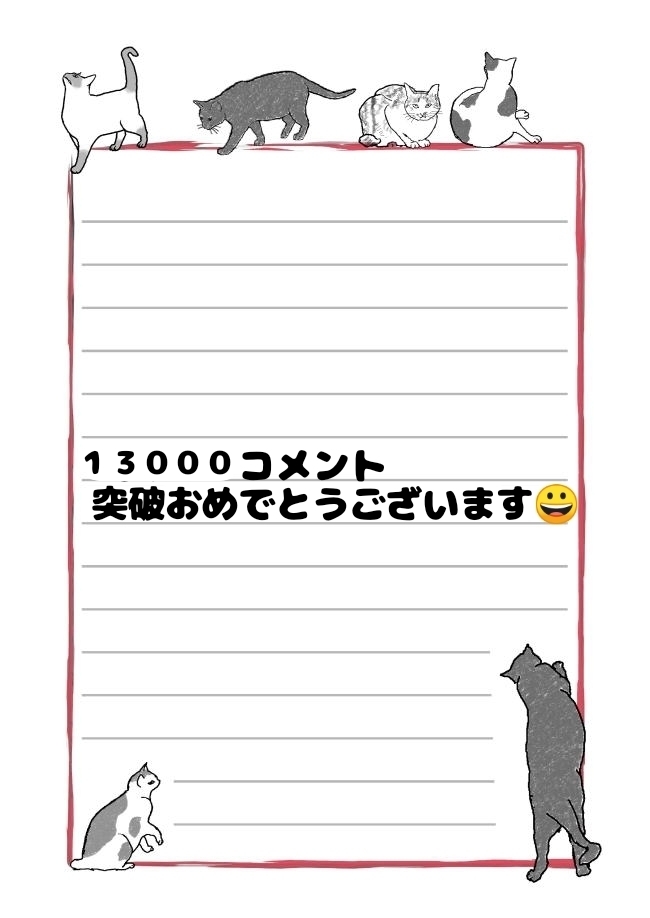 １３０００コメント
突破おめでとうございます😀